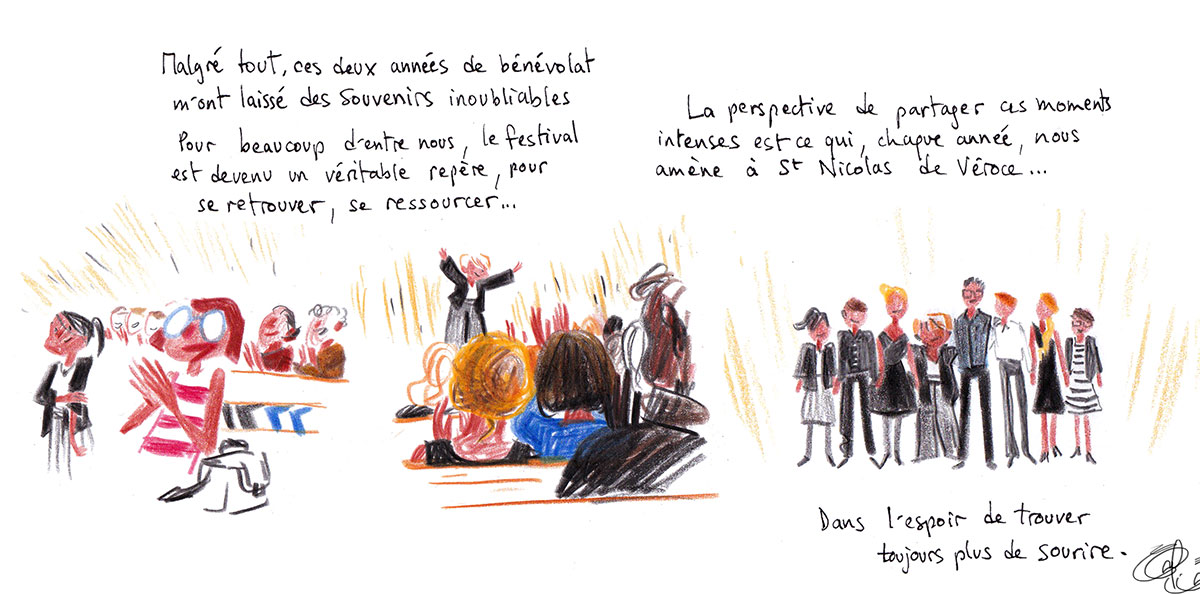 Malgré tout, ces deux années de bénévolat
m'ont laissé des souvenirs inoubliables
Pour beaucoup d'entre nous, le festival
est devenu un véritable repère, pour
se retrouver, se ressourcer...
La perspective de partager ces moments
intenses est ce qui, chaque année, nous
amène à St Nicolas de Véroce...
Dans l'espoir de trouver
toujours plus de sourire.